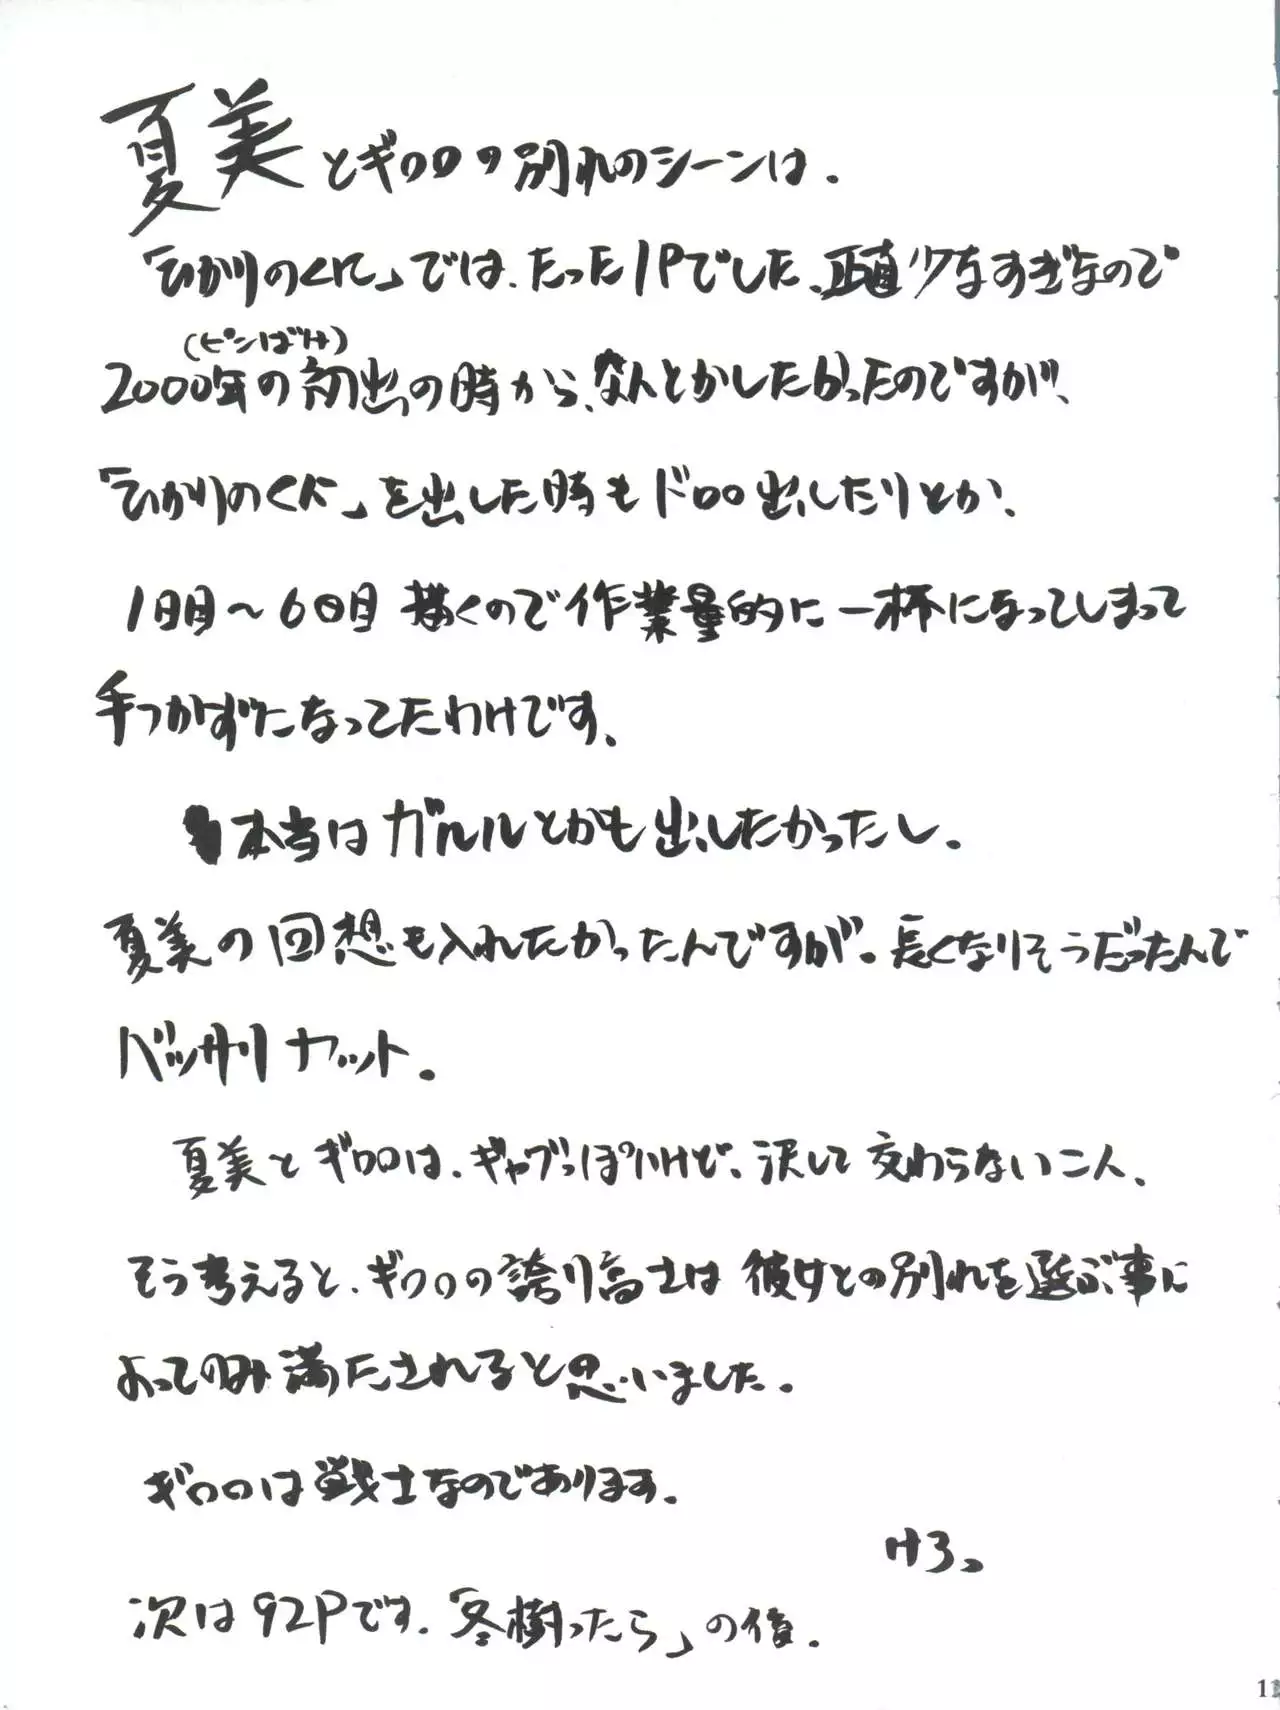 夏美とギロロの別れのシーンは.
「ひかりのくに」では、たった1Pでした、正直少なすぎなので
(ピンばけ)
2000年の初出の時から、なんとかしたかったのですが、
「ひかりのくに」を出した時もドロロ出したりとか、
1日目～6日目 描くので作業量的に一杯になってしまって
手つかずになってたわけです、
本当はガルルとかも出したかったし.
夏美の回想も入れたかったんですが.長くなりそうだったんで
バッサリカット.
夏美とギロロは、ギャブっぽいけど、決して交わらない二人、
そう考えると、ギロロの誇り高さは彼女との別れを選ぶ事に
よってのみ満たされると思いました.
ギロロは戦士なのであります.
けろっ
次は92Pです.「冬樹ったら」の後.
11